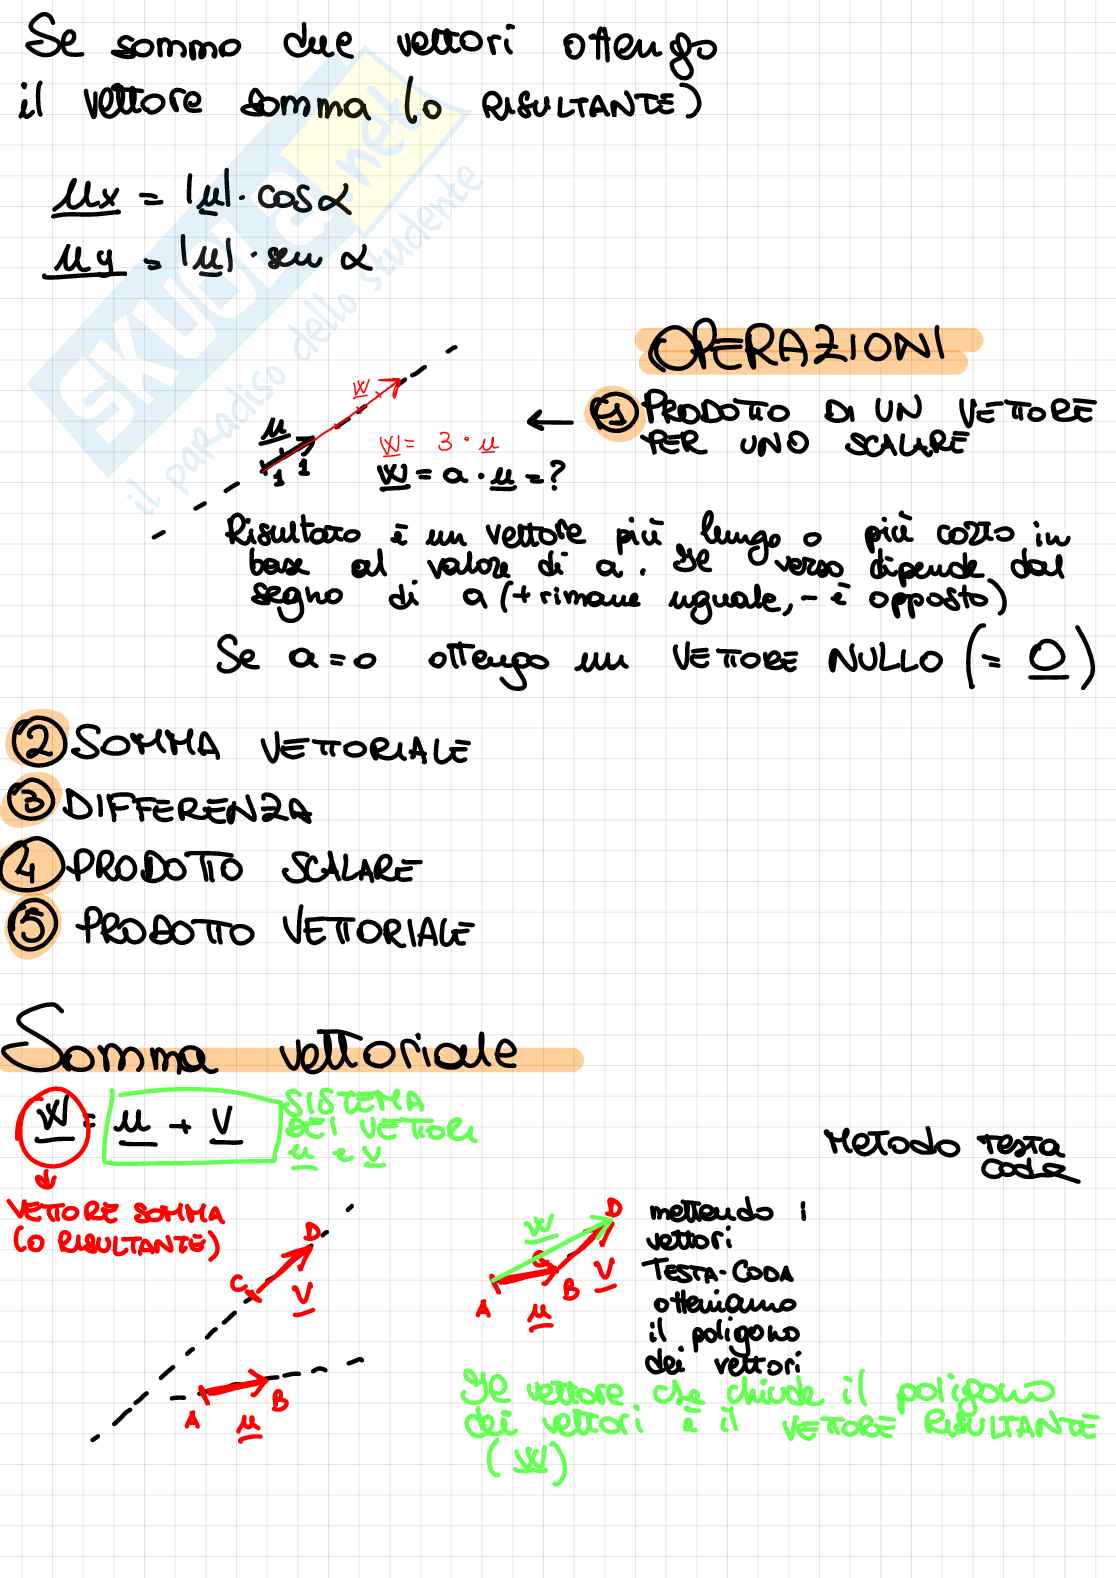 Se sommo due vettori ottengo
il vettore somma (o RISULTANTE)
ux = |u| · cos α
uy = |u| · sen α
SKUOLA.net
il paradiso dello studente
OPERAZIONI
1 PRODOTTO DI UN VETTORE
PER UNO SCALARE
←
w
u
1 1
w = 3 · u
w = a · u = ?
Risultato è un vettore più lungo o più corto in
base al valore di a. Il verso dipende dal
segno di a (+ rimane uguale, - è opposto)
Se a = 0 ottengo un VETTORE NULLO (= 0)
2 SOMMA VETTORIALE
3 DIFFERENZA
4 PRODOTTO SCALARE
5 PRODOTTO VETTORIALE
Somma vettoriale
w = u + v
SISTEMA
DEI VETTORI
u e v
VETTORE SOMMA
(O RISULTANTE)
C D
v
A B
u
Metodo TESTA
coda
w
D
C
A B v
u
mettendo i
vettori
TESTA-CODA
otteniamo
il poligono
dei vettori
Il vettore che chiude il poligono
dei vettori è il VETTORE RISULTANTE
(w)